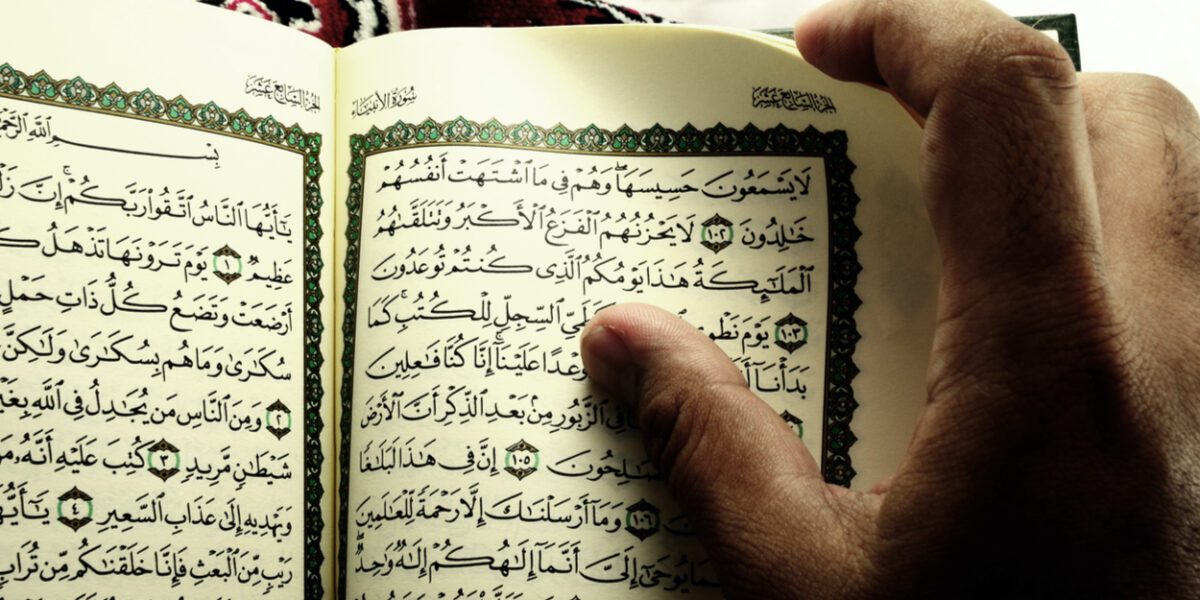 الجزء السابع عشر سُورَةُ الأَنبِيَاء
لَا يَسْمَعُونَ حَسِيسَهَا ۖ وَهُمْ فِي مَا ٱشْتَهَتْ أَنفُسُهُمْ
خَٰلِدُونَ ١٠٢ لَا يَحْزُنُهُمُ ٱلْفَزَعُ ٱلْأَكْبَرُ وَتَتَلَقَّىٰهُمُ
ٱلْمَلَٰٓئِكَةُ هَٰذَا يَوْمُكُمُ ٱلَّذِي كُنتُمْ تُوعَدُونَ
١٠٣ يَوْمَ ٱلسِّجِلِّ لِلْكُتُبِ ۚ كَمَا
وَعْدًا عَلَيْنَآ ۚ إِنَّا كُنَّا فَٰعِلِينَ
فِي ٱلزَّبُورِ مِنۢ بَعْدِ ٱلذِّكْرِ أَنَّ ٱلْأَرْضَ
١٠٥ إِنَّ فِي هَٰذَا لَبَلَٰغًا
١٠٦ وَمَآ أَرْسَلْنَٰكَ إِلَّا رَحْمَةً لِّلْعَٰلَمِينَ
يُوحَىٰٓ إِلَيَّ أَنَّمَآ إِلَٰهُكُمْ إِلَٰهٌ وَٰحِدٌ ۖ
الجزء السابع عشر
بِسْمِ ٱللَّهِ
يَٰٓأَيُّهَا ٱلنَّاسُ ٱتَّقُوا۟ رَبَّكُمْ ۚ إِنَّ
عَظِيمٌ ١ يَوْمَ تَرَوْنَهَا تَذْهَلُ
أَرْضَعَتْ وَتَضَعُ كُلُّ ذَاتِ حَمْلٍ
سُكَٰرَىٰ وَمَا هُم بِسُكَٰرَىٰ وَلَٰكِنَّ
٢ وَمِنَ ٱلنَّاسِ مَن يُجَٰدِلُ فِي ٱللَّهِ
شَيْطَٰنٍ مَّرِيدٍ ٣ كُتِبَ عَلَيْهِ أَنَّهُۥ
وَيَهْدِيهِ إِلَىٰ عَذَابِ ٱلسَّعِيرِ ٤
رَيْبٍ مِّنَ ٱلْبَعْثِ فَإِنَّا خَلَقْنَٰكُم مِّن تُرَابٍ